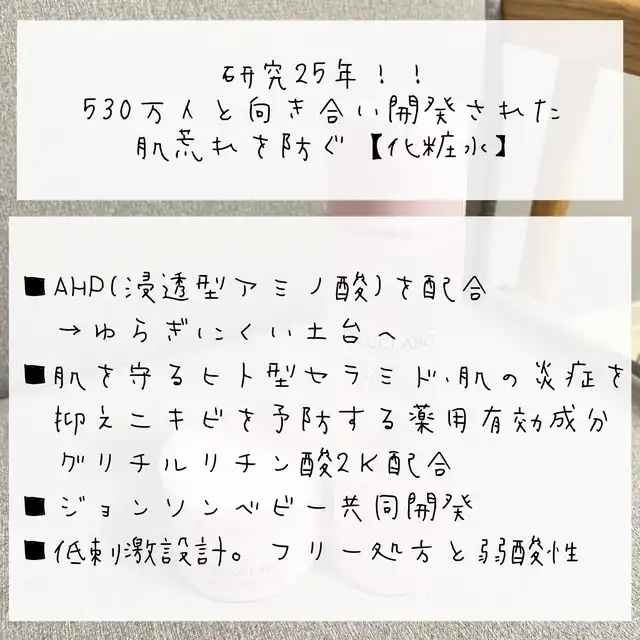 研究25年！！
530万人と向き合い開発された
肌荒れを防ぐ【化粧水】
■AHP(浸透型アミノ酸)を配合
→ゆらぎにくい土台へ
■肌を守るヒト型セラミド、肌の炎症を
抑えニキビを予防する薬用有効成分
グリチルリチン酸2K配合
■ジョンソンベビー共同開発
■低刺激設計。フリー処方と弱酸性